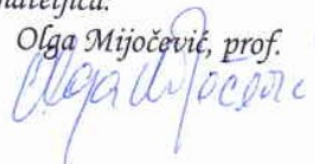 Olga Mijočević, prof.
Olga Mijočević